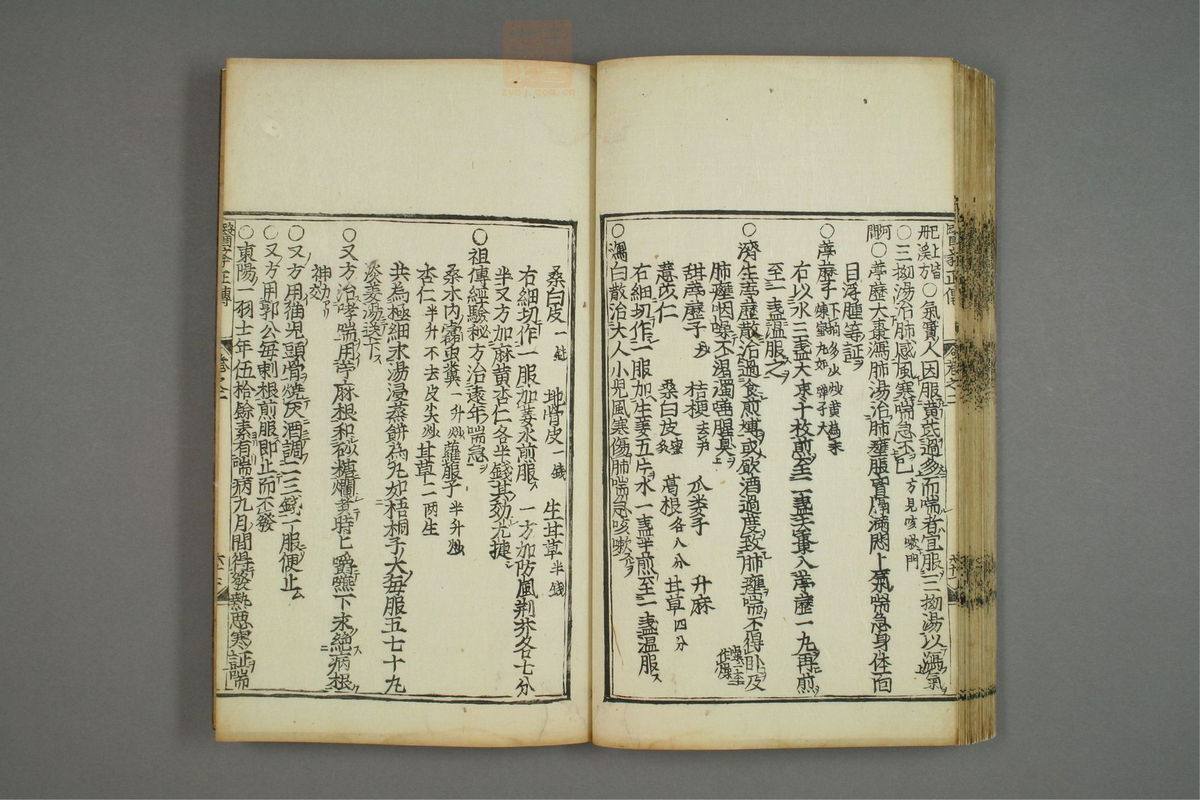 丹溪方〇氣實人因服黃芪過多而喘者宜服三拗湯以瀉氣
〇三拗湯治肺感風寒喘急不已方見咳嗽門
〇葶藶大棗瀉肺湯治肺癰脹胷膈滿悶上氣喘急身体面
目浮腫等証
〇葶藶子不拘多少炒黃為末煉蜜丸如彈子大
右以水三盞大棗十枚煎至二盞去棗入葶藶一丸再煎
至一盞温服之
〇濟生葶藶散治過食煎煿或飲酒過度致肺癰喘不得卧及
肺癰因燥不渴濁唾腥臭
甜葶藶子炒 桔梗去芦 瓜蔞子 升麻
薏苡仁 桑白皮蜜炙 葛根各八分 甘草四分
右細切作一服加生姜五片水一盞半煎至一盞温服
〇瀉白散治大人小兒風寒傷肺喘急咳嗽
桑白皮一錢 地骨皮一錢 生甘草半錢
右細切作一服加姜水煎服 一方加防風荆芥各七分
半又方加麻黃杏仁各半錢其効尤捷
〇祖傳經驗秘方治遠年喘急
桑木内蠹虫糞一升炒 蘿蔔子半升炒
杏仁半升不去皮尖炒 甘草二両生
共為極細末湯浸蒸餅為丸如梧桐子大每服五七十丸
淡姜湯送下
〇又方治哮喘用苧麻根和砂糖爛煮時々嚼嚥下永絕病根
神効
〇又方用猫兒頭骨燒灰酒調二三錢一服便止
〇又方用郭公每刺根煎服即止而不發
〇東陽一羽士年伍拾餘素有喘病九月間得發熱惡寒証喘